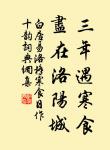 三年遇寒食
盡在洛陽城
白居易洛橋寒食日作
十韻詞典網集